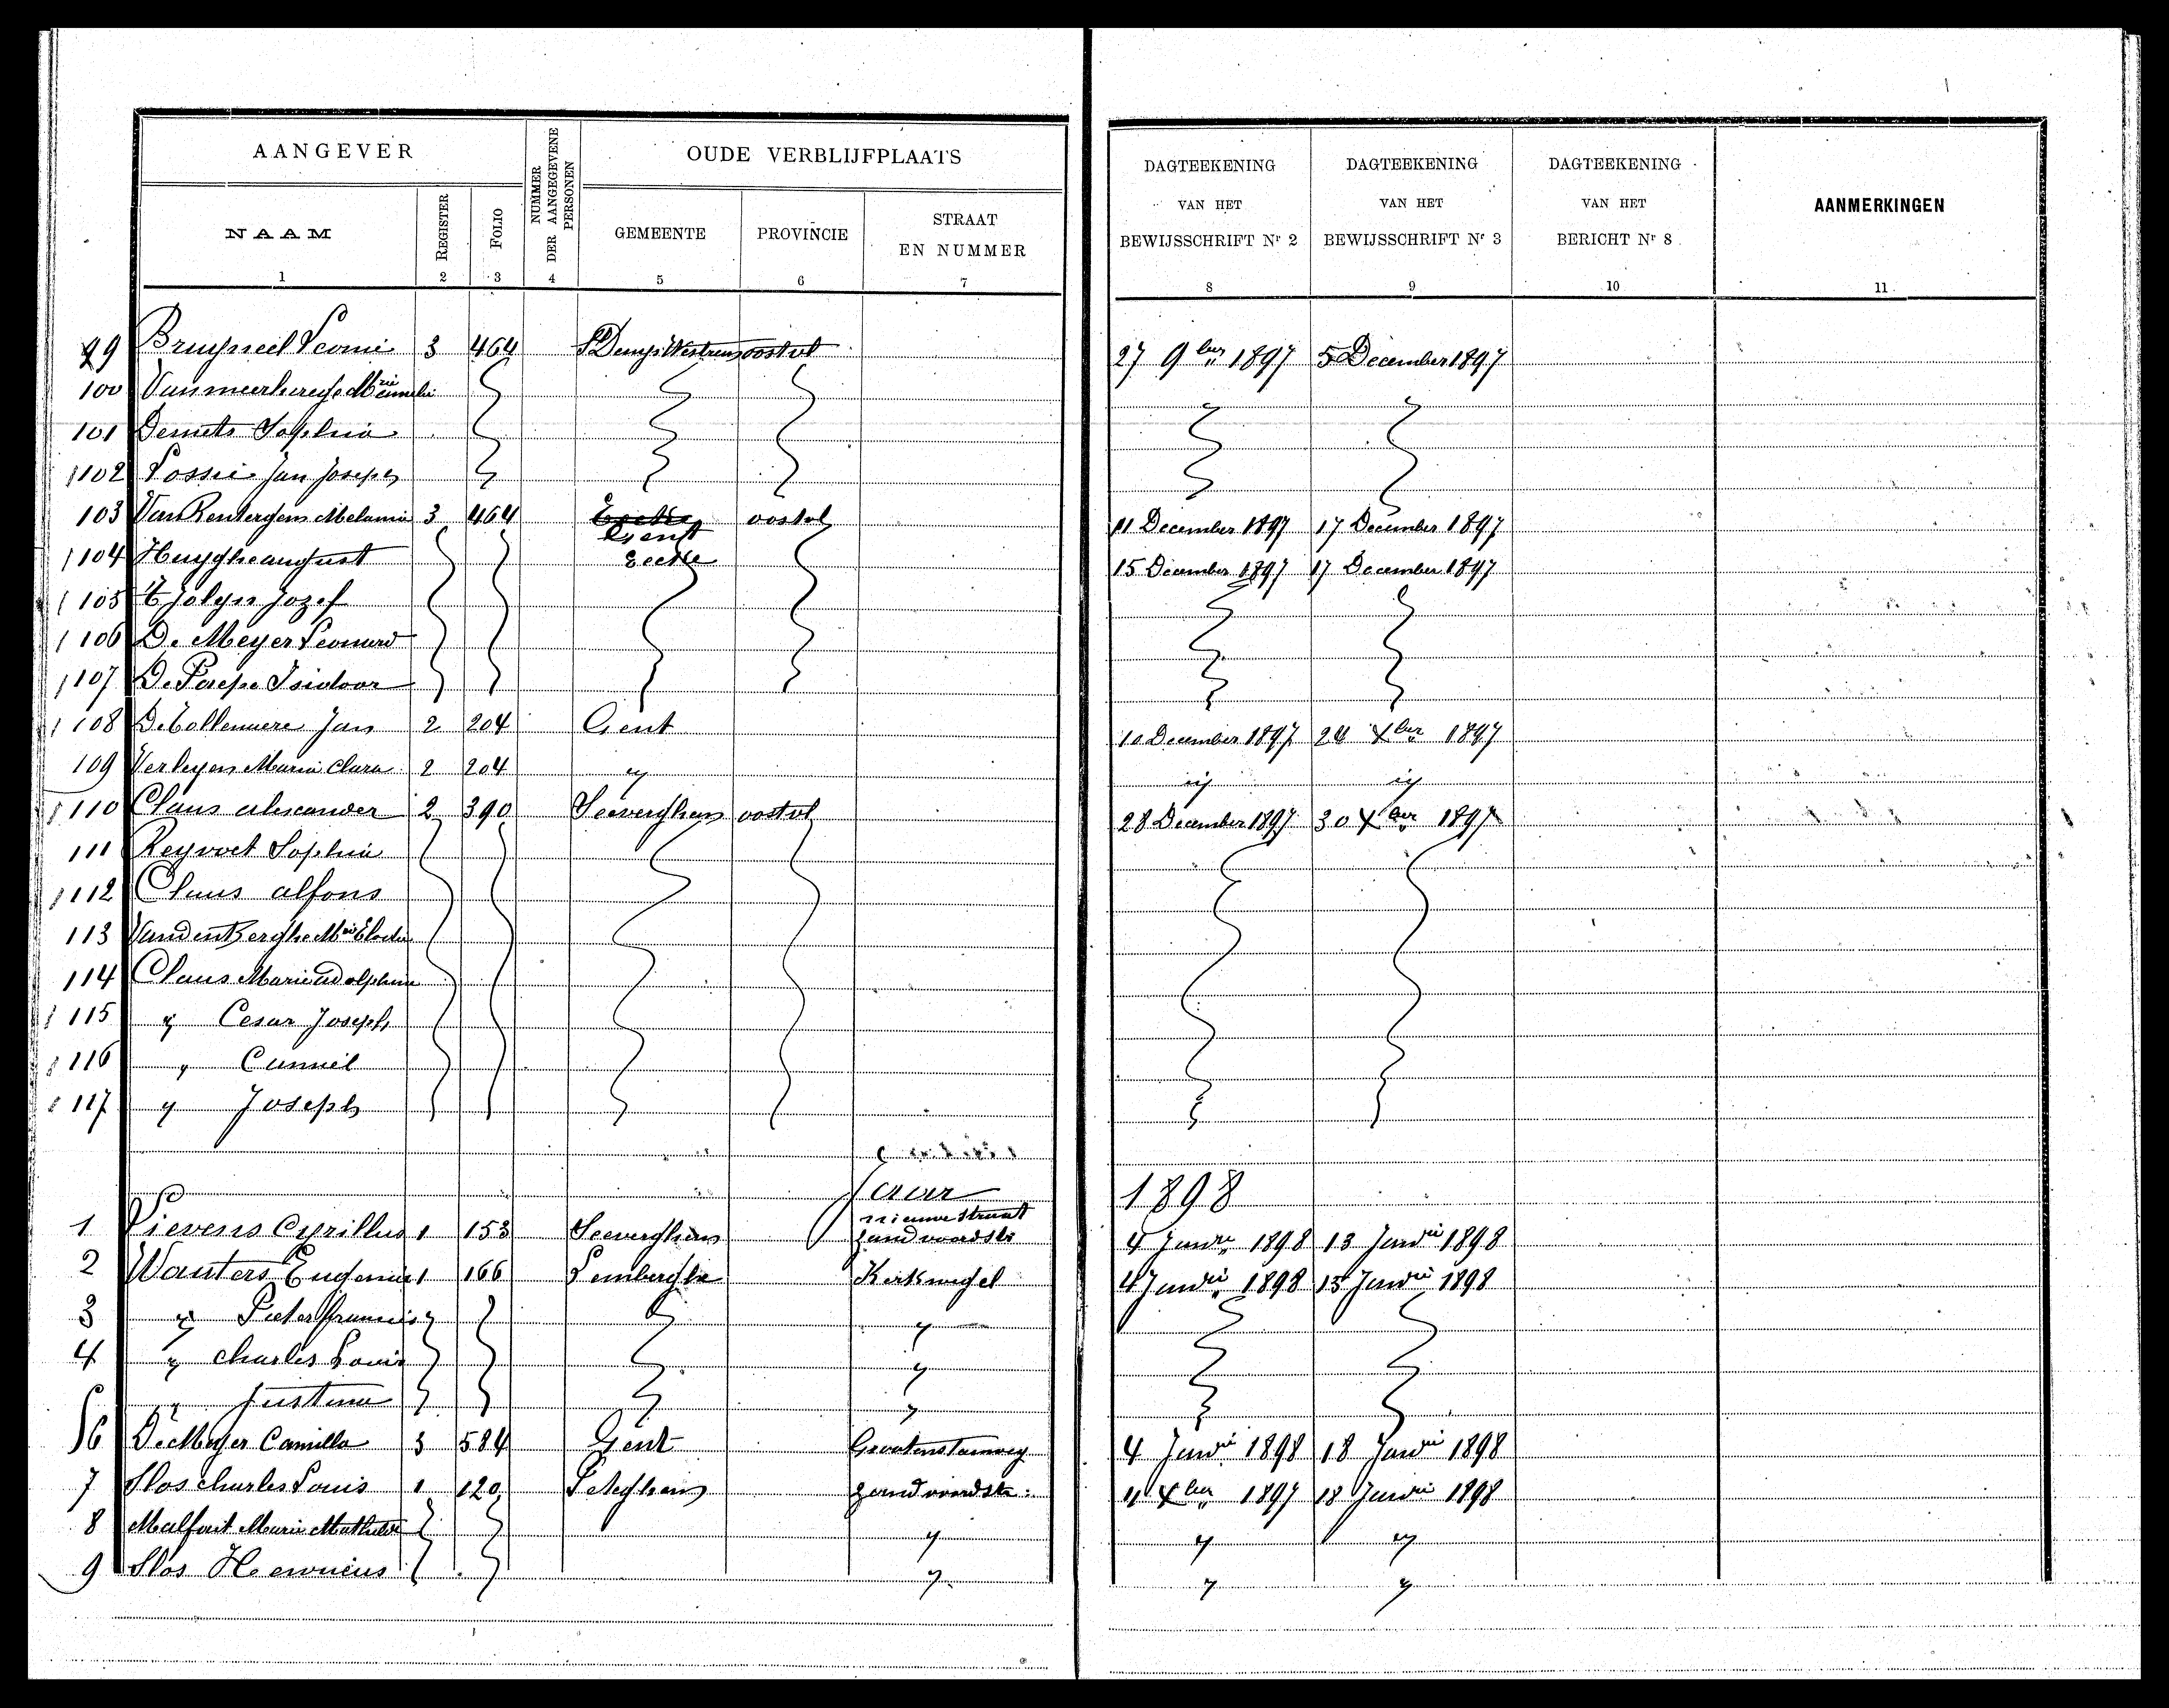 AANGEVER
NUMMER DER AANGEGEVENE PERSONEN
OUDE VERBLIJFPLAATS
DAGTEEKENING VAN HET BEWIJSSCHRIFT Nr 2
DAGTEEKENING VAN HET BEWIJSSCHRIFT Nr 3
DAGTEEKENING VAN HET BERICHT Nr 8
AANMERKINGEN
NAAM REGISTER FOLIO GEMEENTE PROVINCIE STRAAT EN NUMMER
1 2 3 4 5 6 7 8 9 10 11
99 Bruyneel Leonie 3 464 St Denys Westrem oostvl 27 9ber 1897 5 December 1897
100
101 Demets Sophia
102 Jan Joseph
103 Van Rentergem Melanie 3 464 Gent oostvl 11 December 1897 17 December 1897
104 Huyghe august Eecke 15 December 1897 17 December 1897
105 Jozef
106 De Meyer Leonard
107 De Paepe Isidoor
108 Jan 2 204 Gent 10 December 1897 24 Xber 1897
109 Verleyen Marie Clara 2 204 " " "
110 Claus alexander 2 390 Seeverghem oostvl 28 December 1897 30 Xber 1897
111 Sophia
112 Claus alfons
113 Vanden Berghe Mie Elodie
114 Claus Marie adolphine
115 " Cesar Joseph
116 " Camiel
117 " Joseph
1898
1 Lievens Cyrillus 1 153 Seeverghem nieuwe straat zandvoordstr 4 Janri 1898 13 Janrii 1898
2 Wauters Eugenie 1 166 Lemberghe Kerkwegel 4 Janrii 1898 13 Janrii 1898
3 " Pieter francis "
4 " charles Louis "
5 " Justina "
6 De Meyer Camilla 3 584 Gent 4 Janrii 1898 18 Janrii 1898
7 Slos charles Louis 1 120 zandvoordstr. 11 Xber 1897 18 Janrii 1898
8 Malfait Marie Mathilde " " "
9 Slos " " "